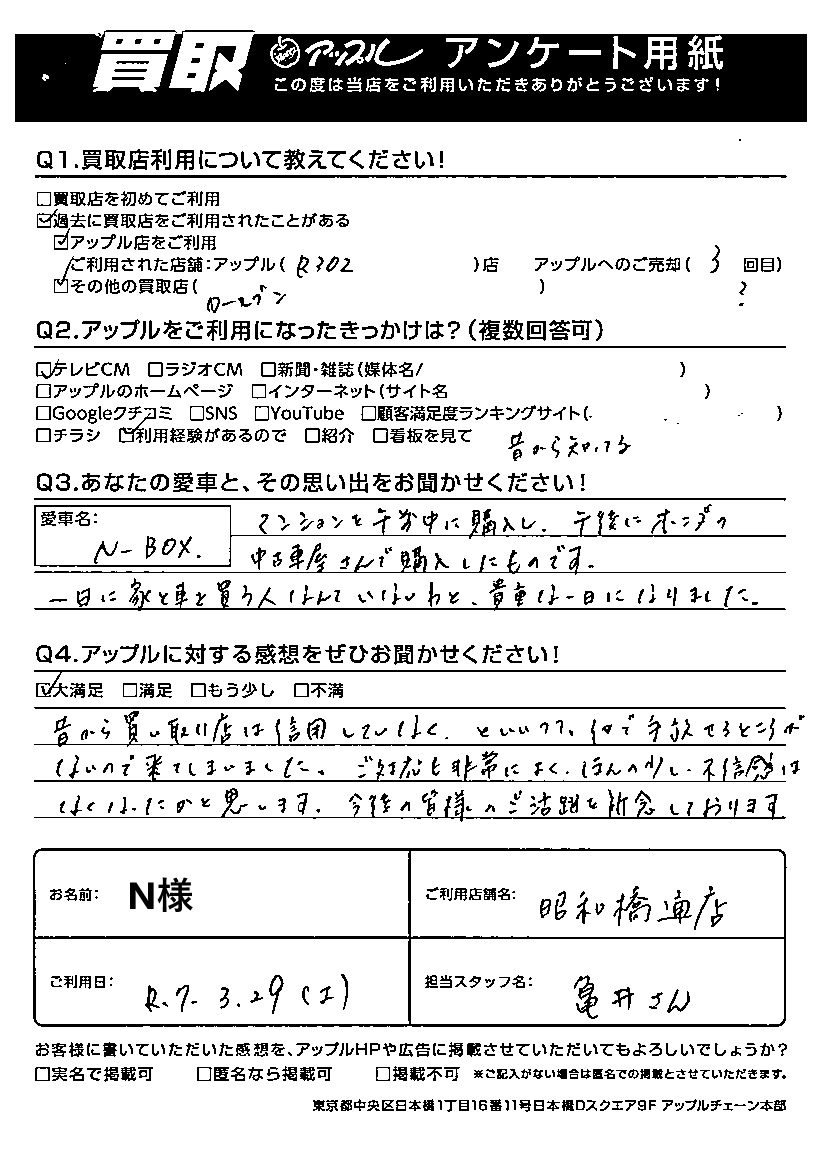 買取 アップル アンケート用紙
この度は当店をご利用いただきありがとうございます!
Q1.買取店利用について教えてください!
□買取店を初めてご利用
☑過去に買取店をご利用されたことがある
☑アップル店をご利用
ご利用された店舗:アップル( R302 )店 アップルへのご売却( 3 回目)
☑その他の買取店( ) ?
Q2.アップルをご利用になったきっかけは?(複数回答可)
☑テレビCM □ラジオCM □新聞・雑誌(媒体名/ )
□アップルのホームページ □インターネット(サイト名 )
□Googleクチコミ □SNS □YouTube □顧客満足度ランキングサイト( )
□チラシ ☑利用経験があるので □紹介 □看板を見て 昔から知ってる
Q3.あなたの愛車と、その思い出をお聞かせください!
愛車名: マンションを午前中に購入し、午後にホンダの
N-BOX. 中古車屋さんで購入したものです。
一日に家と車を買う人なんていないわと、貴重な一日になりました。
Q4.アップルに対する感想をぜひお聞かせください!
☑大満足 □満足 □もう少し □不満
昔から買い取り店は信用していなく、といいつつ、何で手放せるところが
ないので来てしまいました。ご対応も非常によく、ほんの少し不信感は
なくなったかと思います。今後の皆様のご活躍を祈念しております
お名前: N様 ご利用店舗名: 昭和橋通店
ご利用日: R.7. 3.29(土) 担当スタッフ名: 亀井さん
お客様に書いていただいた感想を、アップルHPや広告に掲載させていただいてもよろしいでしょうか?
□実名で掲載可 □匿名なら掲載可 □掲載不可 ※ご記入がない場合は匿名での掲載とさせていただきます。
東京都中央区日本橋1丁目16番11号日本橋Dスクエア9F アップルチェーン本部